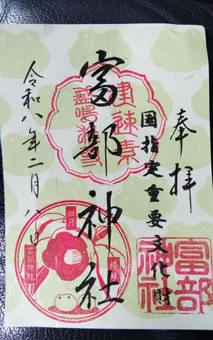 奉拝
国指定重要文化財
富部神社
令和八年二月八日
富部
神社